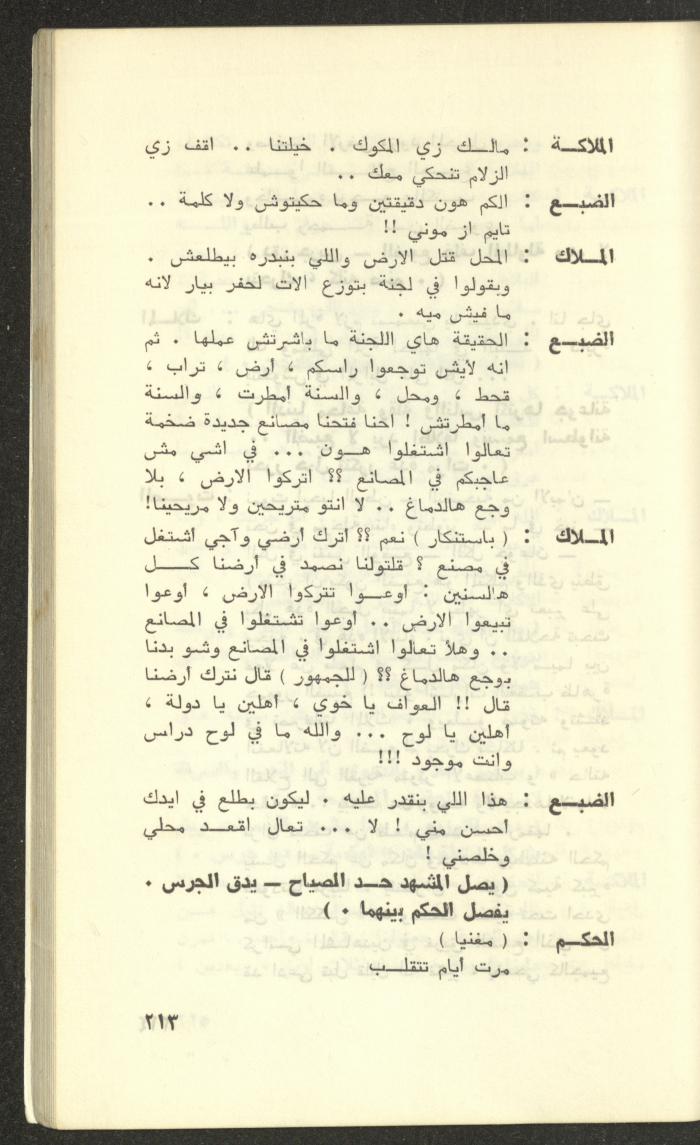 الملاكة : مالك زي المكوك . خيلتنا .. اقف زي
الزلام تنحكي معك ..
الضبع : الكم هون دقيقتين وما حكيتوش ولا كلمة ..
تايم از موني !!
الملاك : المحل قتل الارض واللي بنبدره بيطلعش .
وبقولوا في لجنة بتوزع الات لحفر بيار لانه
ما فيش ميه .
الضبع : الحقيقة هاي اللجنة ما باشرتش عملها . ثم
انه لأيش توجعوا راسكم ، أرض ، تراب ،
قحط ، ومحل ، والسنة أمطرت ، والسنة
ما أمطرتش ! احنا فتحنا مصانع جديدة ضخمة
تعالوا اشتغلوا هون ... في اشي مش
عاجبكم في المصانع ؟؟ اتركوا الارض ، بلا
وجع هالدماغ .. لا انتو متريحين ولا مريحيننا!
الملاك : ( باستنكار ) نعم ؟؟ أترك أرضي وآجي أشتغل
في مصنع ؟ قلتولنا نصمد في أرضنا كل
هالسنين : أوعوا تتركوا الارض ، أوعوا
تبيعوا الارض .. أوعوا تشتغلوا في المصانع
.. وهلأ تعالوا اشتغلوا في المصانع وشو بدنا
بوجع هالدماغ ؟؟ ( للجمهور ) قال نترك أرضنا
قال !! العواف يا خوي ، أهلين يا دولة ،
أهلين يا لوح ... والله ما في لوح دراس
وانت موجود !!!
الضبع : هذا اللي بنقدر عليه . ليكون بطلع في ايدك
أحسن مني ! لا ... تعال اقعد محلي
وخلصني !
( يصل المشهد حد الصياح — يدق الجرس .
يفصل الحكم بينهما . )
الحكم : ( مغنيا )
مرت أيام تتقلب
٢١٣